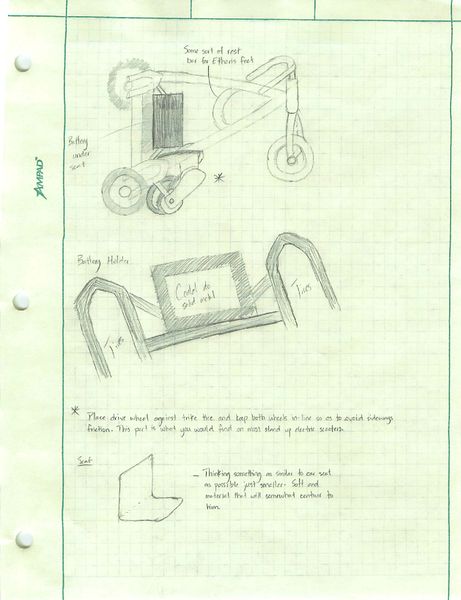 Some sort of rest
bar for Ethan's feet
Battery
under
seat
*
AMPAD
Battery Holder
Could be
solid metal
Tires
Tires
* Place drive wheel against trike tire and keep both wheels in-line so as to avoid sideways
friction. This part is what you would find on most stand up electric scooters.
Seat
- Thinking something as similar to car seat
as possible just smaller. Soft and
material that will somewhat contour to
him.